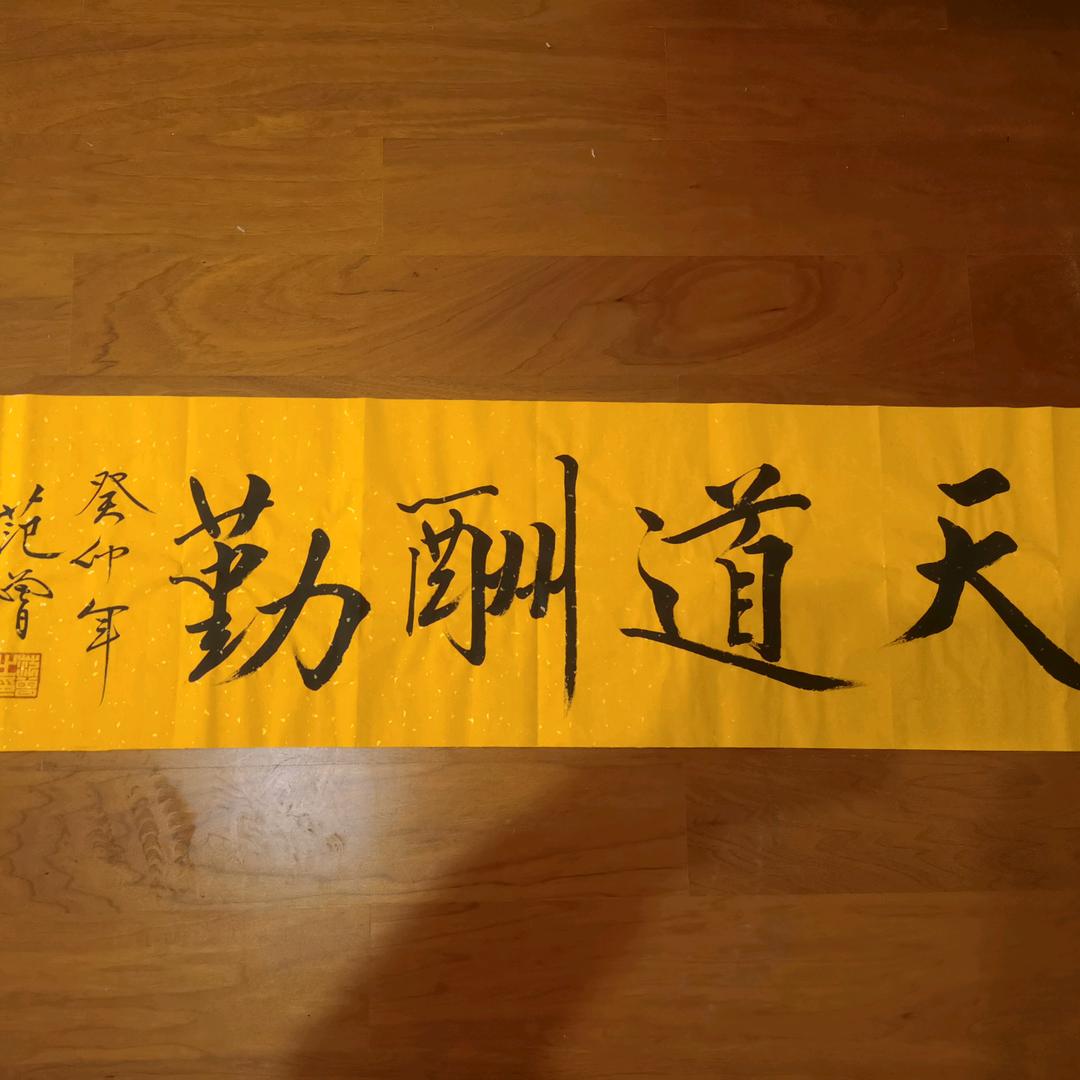 天道酬勤
癸卯年
范曾